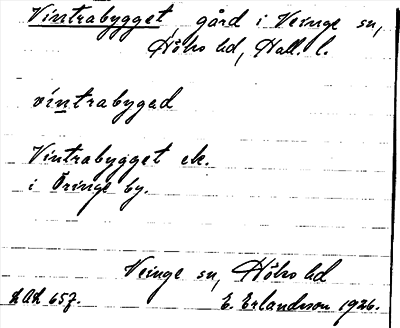 Vintrabygget, gård i Veinge sn,
Höks hd, Hall. l.
vintrabygəd
Vintrabygget ek.
i Öringe by.
Veinge sn, Höks hd
LAL 657. E. Erlandsson 1926.